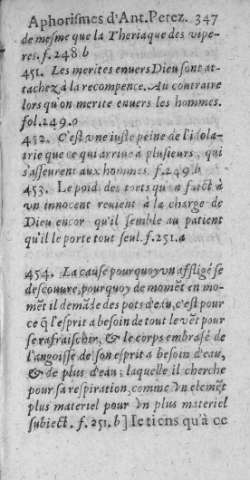 Aphorismes d'Ant. Perez. 347
de mesme que la Theriaque des vipe-
res. f. 248. b
451. Les merites enuers Dieu sont at-
tachez à la recompence. Au contraire
lors qu'on merite enuers les hommes.
fol. 249. a
452. C'est vne iuste peine de l'idola-
trie que ce qui arriue a plusieurs, qui
s'asseurent aux hommes. f. 249. b
453. Le poid des torts qu'on a faict à
vn innocent reuient à la charge de
Dieu encor qu'il semble au patient
qu'il le porte tout seul. f. 251. a
454. La cause pourquoy vn affligé se
descouure, pourquoy de momẽt en mo-
mẽt il demãde des pots d'eau, c'est pour
ce q̃ l'esprit a besoin de tout le vẽt pour
se rafraischir, & le corps embrasé de
l'angoisse de son esprit a besoin d'eau,
& de plus d'eau; laquelle il cherche
pour sa respiration, comme vn elemẽt
plus materiel pour vn plus materiel
subiect. f. 251. b] Ie tiens qu'à ce